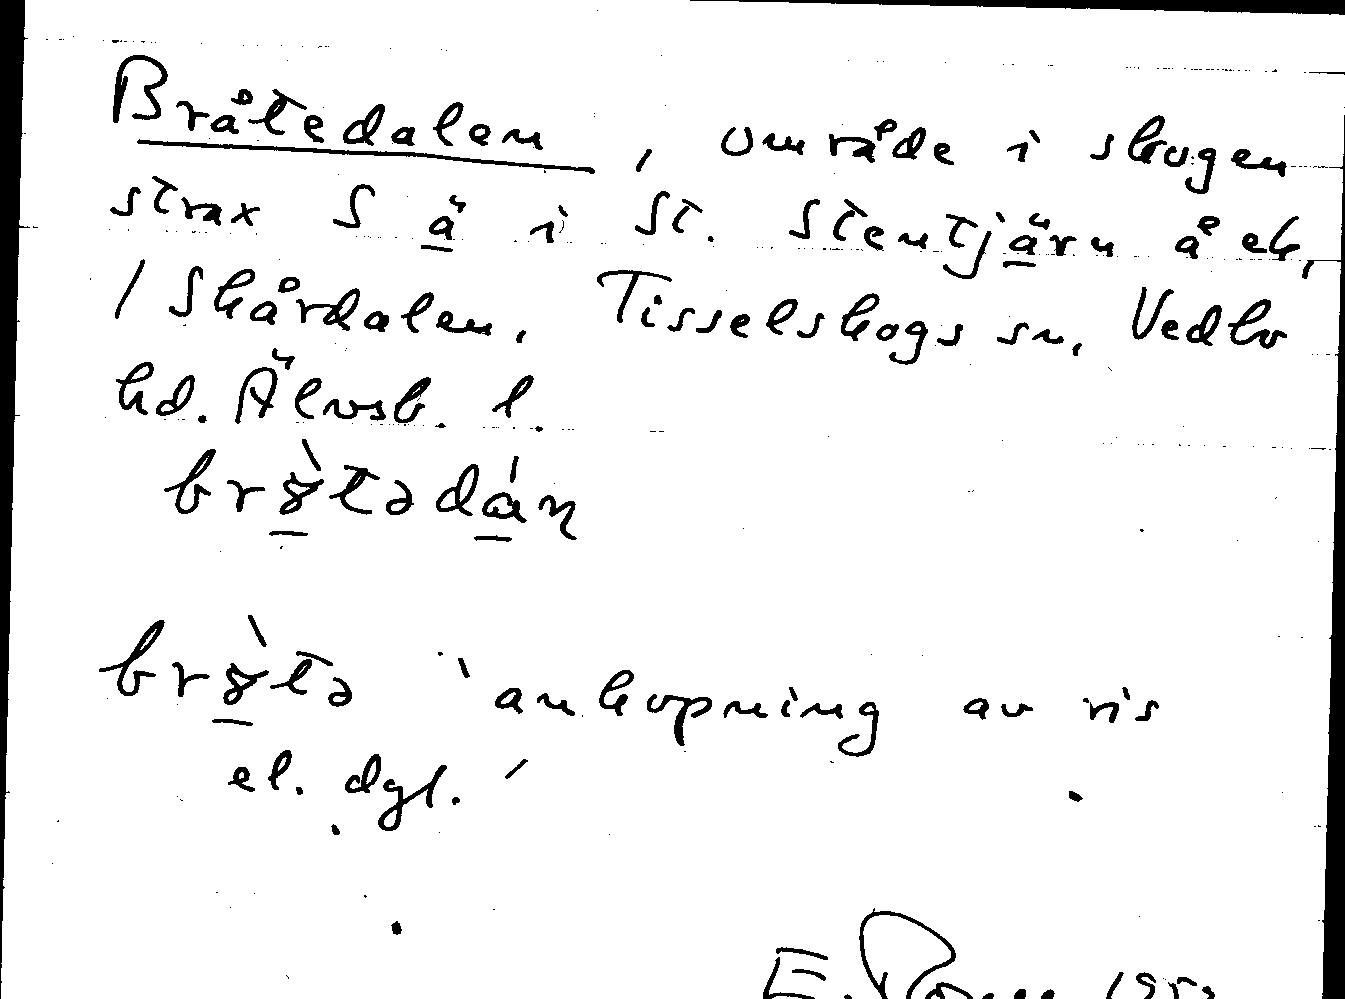 Bråtedalen, område i skogen
strax S ä i St. Stentjärn å ek,
/ Skårdalen, Tisselskogs sn, Vedbo
hd. Älvsb. l.
br8̀tədán
br8̀tə 'anhopning av ris
el. dgl.'
E.